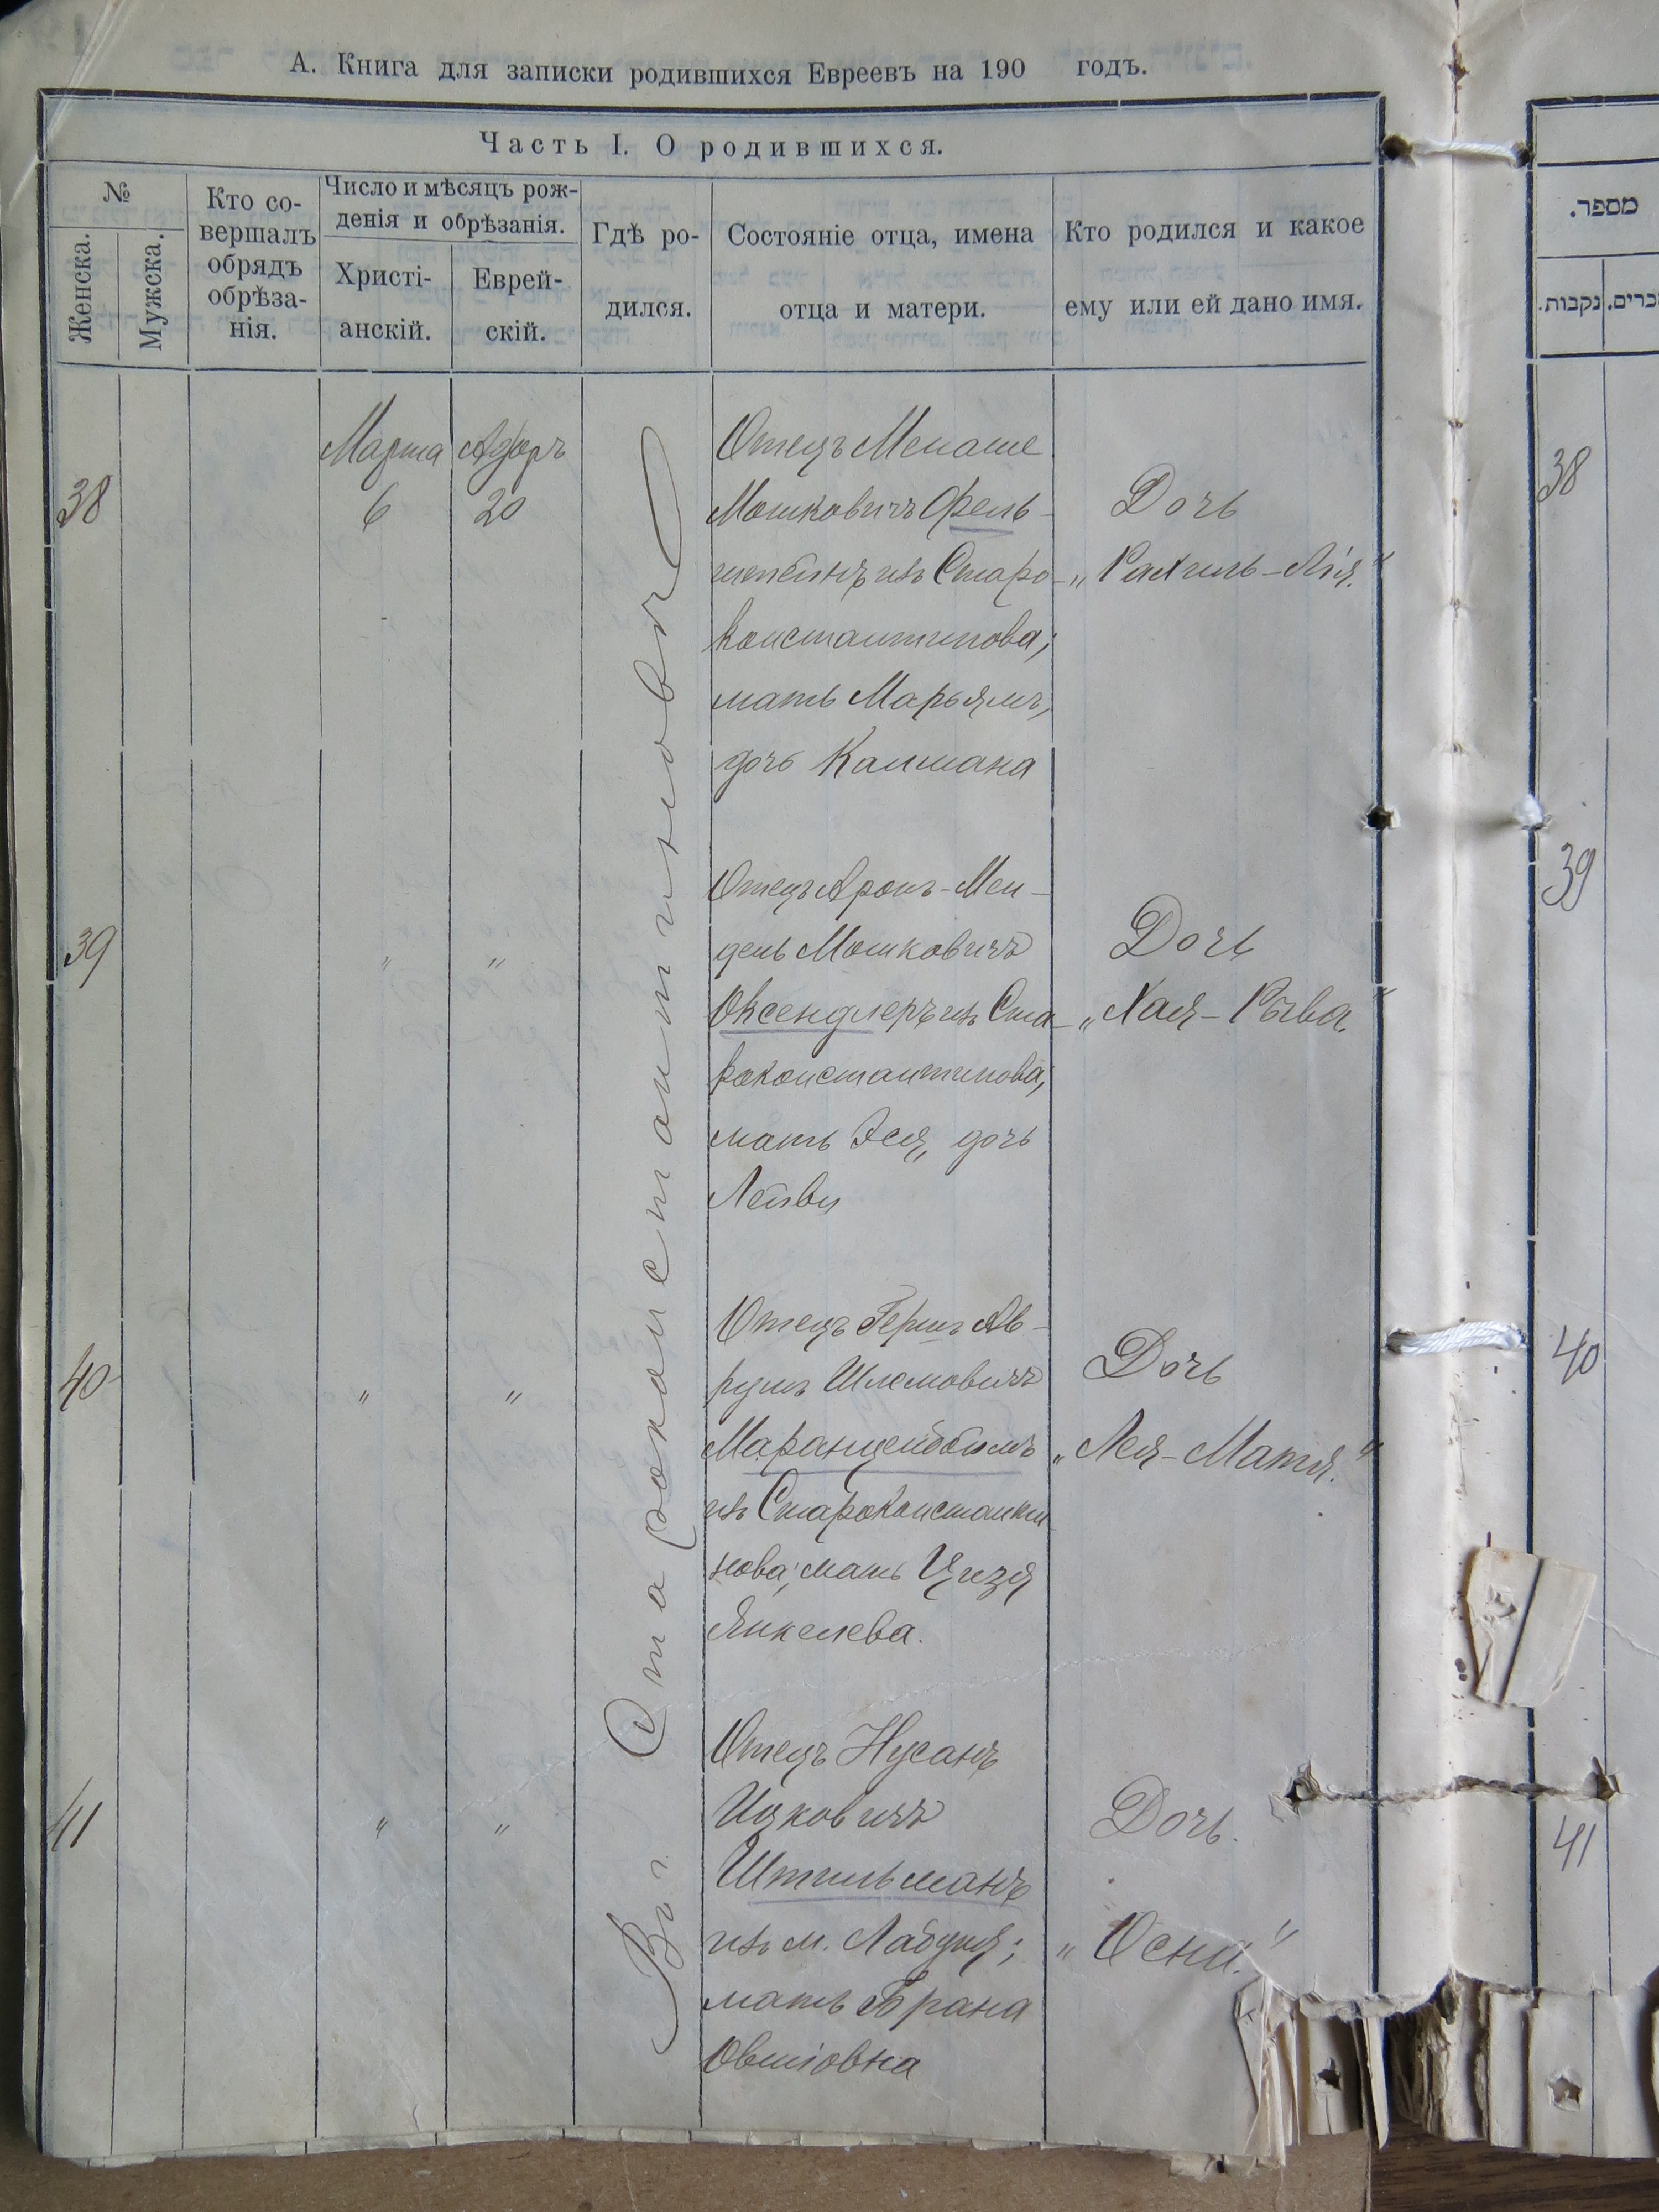 А. Книга для записки родившихся Евреевъ на 190 годъ.
Часть I. О родившихся.
№
Женска.
Мужска.
Кто со-
вершалъ
обрядъ
обрѣза-
нія.
Число и мѣсяцъ рож-
денія и обрѣзанія.
Христі-
анскій.
Еврей-
скій.
Гдѣ ро-
дился.
Состояніе отца, имена
отца и матери.
Кто родился и какое
ему или ей дано имя.
מספר.
נקבות.
Въ Староконстантиновѣ
38
Марта
6
Адаръ
20
Отецъ Менаше
Мошковичъ Фель-
штейнъ изъ Старо-
константинова;
мать Марьямъ,
дочь Калмана
Дочь
„Рахиль-Лія."
38
39
"
"
Отецъ Аронъ-Мен-
дель Мошковичъ
Оксендлеръ изъ Ста-
роконстантинова;
мать Эся, дочь
Лейви
Дочь
„Хая-Рыва."
39
40
"
"
Отецъ Гершъ Ав-
румъ Шлемовичъ
Маранцейбоймъ
изъ Староконстанти-
нова; мать Цизя
Янкелева.
Дочь
„Лея-Матя."
40
41
"
"
Отецъ Нусанъ
Ицковичъ
Штильманъ
изъ м. Лабуня;
мать Брана
Овшіовна
Дочь.
„Осна."
41